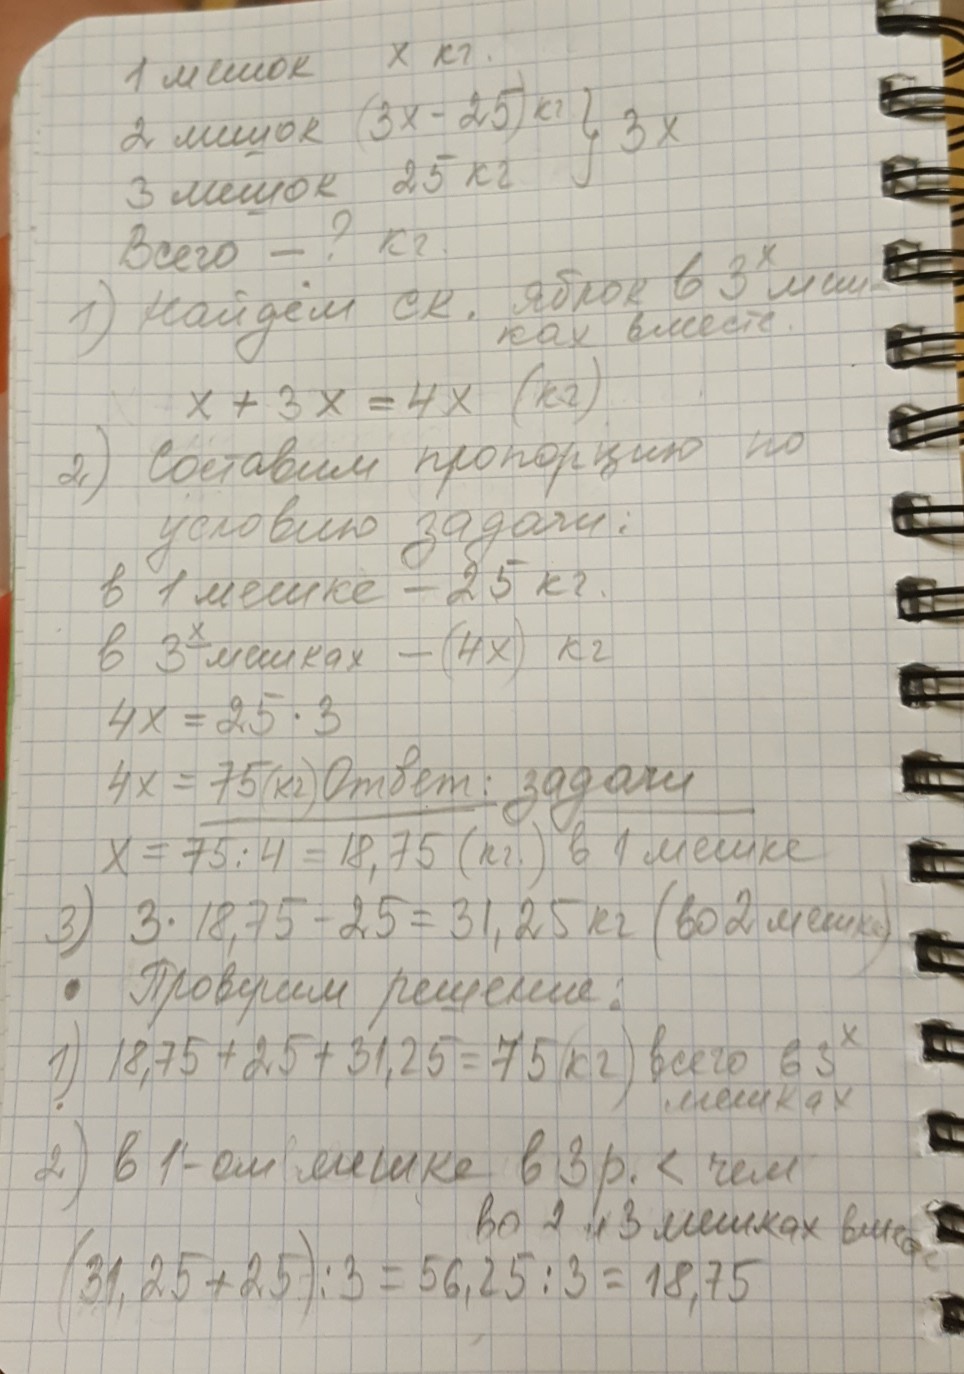 1 мешок х кг.
2 мешок (3х - 25) кг } 3х
3 мешок 25 кг
Всего — ? кг.
1) Найдём ск. яблок в 3х меш-
ках вместе.
х + 3х = 4х (кг)
2) Составим пропорцию по
условию задачи:
в 1 мешке — 25 кг.
в 3х мешках — (4х) кг
4х = 25 · 3
4х = 75 (кг) Ответ: задачи
х = 75 : 4 = 18,75 (кг.) в 1 мешке
3) 3 · 18,75 - 25 = 31,25 кг (во 2 мешке)
• Проверим решение:
1) 18,75 + 25 + 31,25 = 75 (кг) всего в 3х
мешках
2) в 1-ом мешке в 3 р. < чем
во 2 и 3 мешках вместе
(31,25 + 25) : 3 = 56,25 : 3 = 18,75